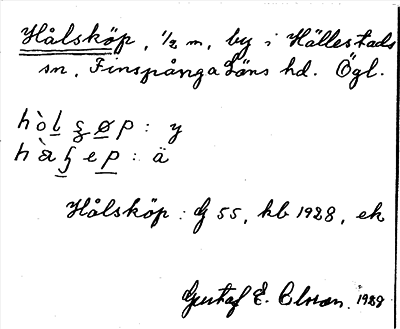 Hålsköp, 1/2 m, by i Hällestads
sn, Finspånga Läns hd. Ögl.
: y
: ä
Hålsköp : G 55, kb 1928, ek
Gustaf E. Olsson. 1928